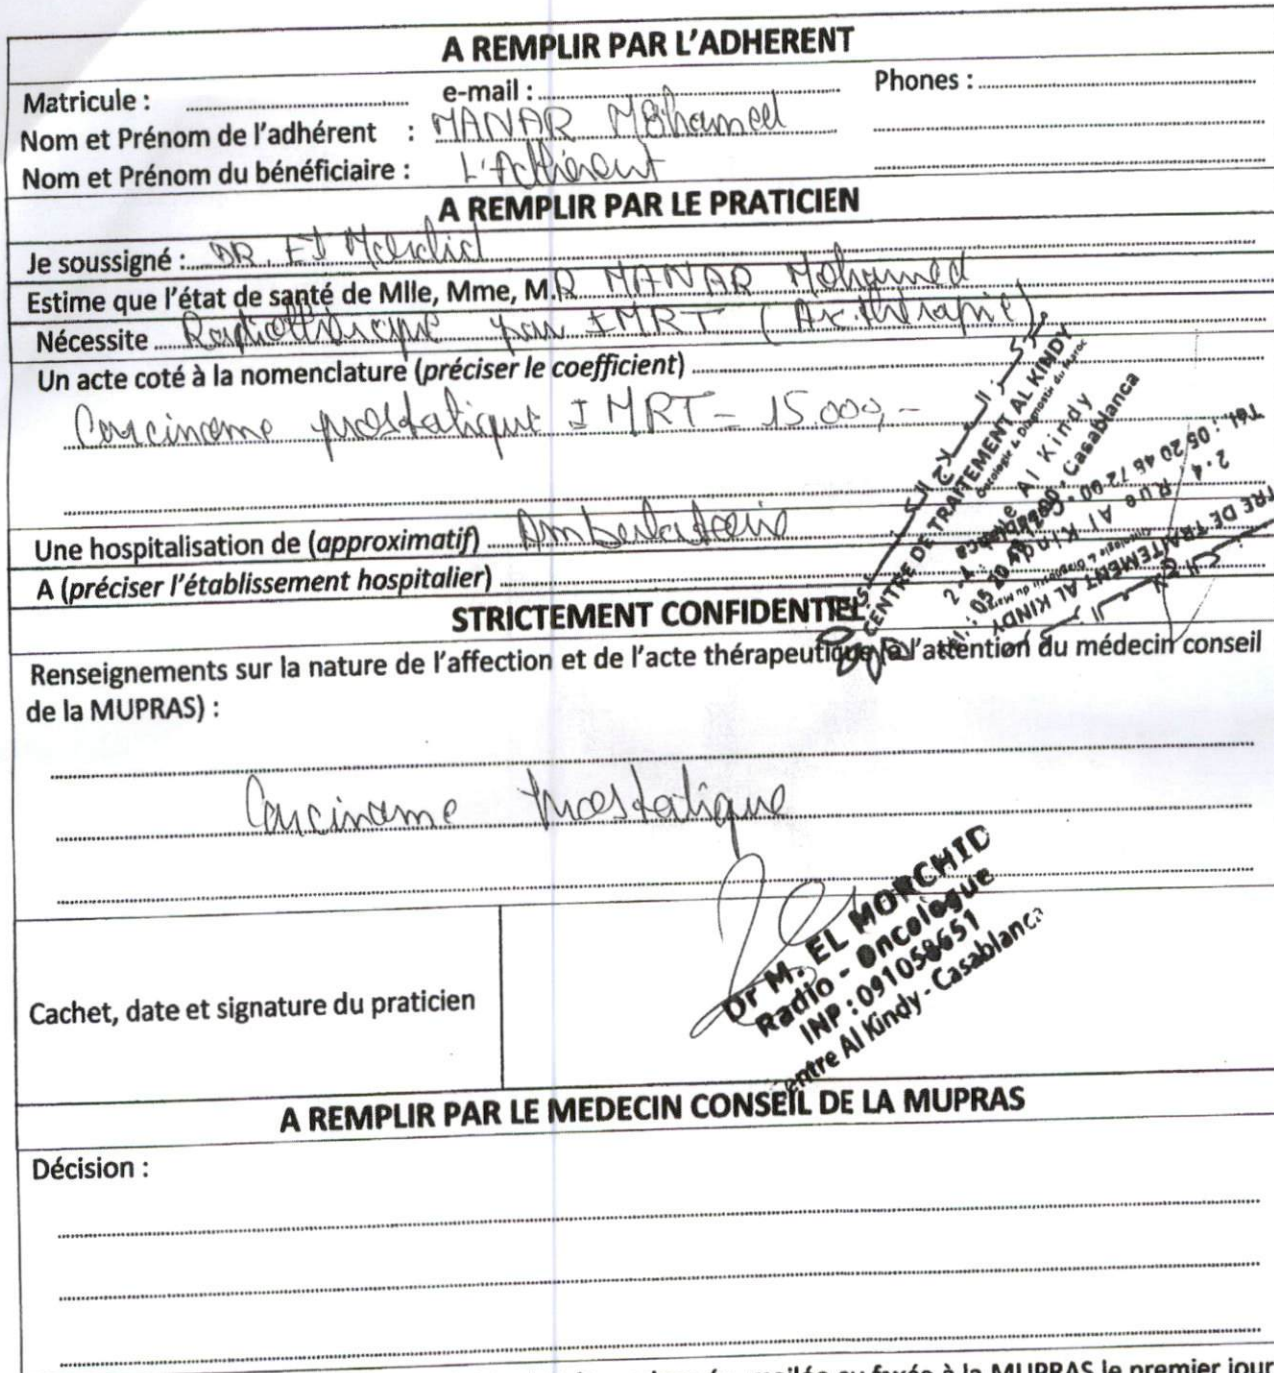 A REMPLIR PAR L'ADHERENT
Matricule : e-mail : Phones :
Nom et Prénom de l'adhérent : MANAR Mohamed
Nom et Prénom du bénéficiaire : L'Adhérent
A REMPLIR PAR LE PRATICIEN
Je soussigné : DR. El Morchid
Estime que l'état de santé de Mlle, Mme, M.R MANAR Mohamed
Nécessite Radiothérapie par IMRT (Arcthérapie)
Un acte coté à la nomenclature (préciser le coefficient)
Carcinome prostatique IMRT = 15.000,-
Une hospitalisation de (approximatif) Ambulatoire
A (préciser l'établissement hospitalier)
CENTRE DE TRAITEMENT AL KINDY
Oncologie & Diagnostic du Maroc
Al Kindy
Casablanca
Tél : 05 20 46 72 00
2-4, Rue Al Kindy
TRE DE TRAITEMENT AL KINDY
STRICTEMENT CONFIDENTIEL
Renseignements sur la nature de l'affection et de l'acte thérapeutique (à l'attention du médecin conseil
de la MUPRAS) :
Carcinome prostatique
Cachet, date et signature du praticien
Dr M. EL MORCHID
Radio - Oncologue
INP : 091058651
entre Al Kindy - Casablanca
A REMPLIR PAR LE MEDECIN CONSEIL DE LA MUPRAS
Décision :
à la MUPRAS le premier jour